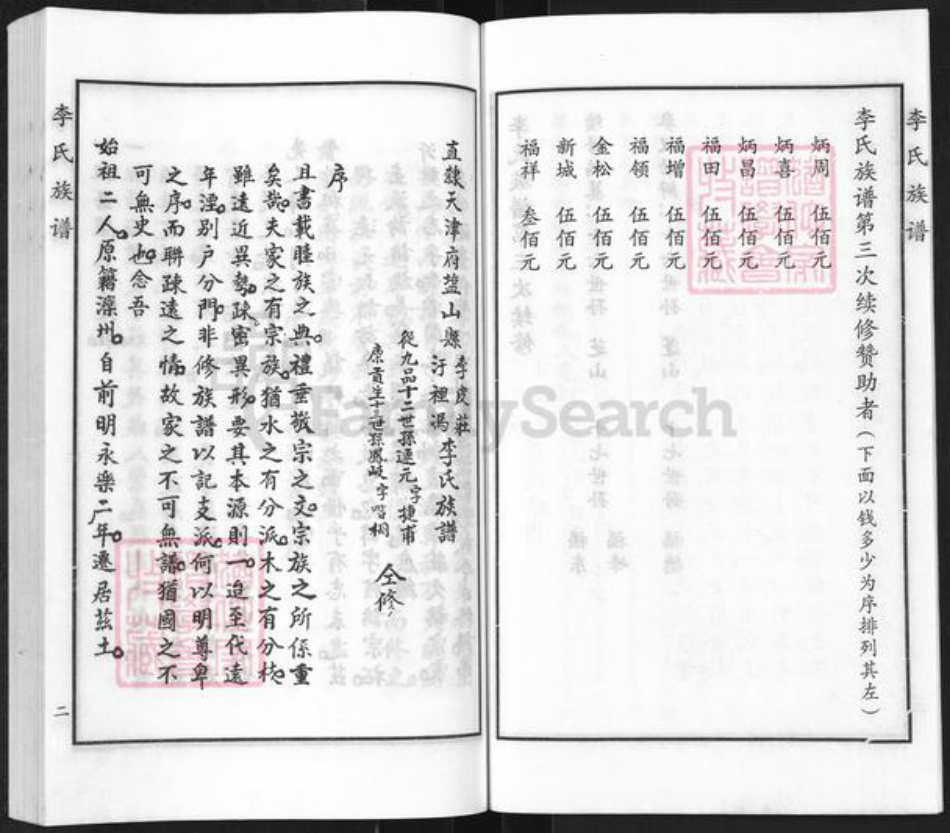 李氏族谱
李氏族谱第三次续修赞助者（下面以钱多少为序排列其左）
炳周 伍佰元
炳喜 伍佰元
炳昌 伍佰元
福田 伍佰元
福增 伍佰元
福领 伍佰元
金松 伍佰元
新城 伍佰元
福祥 叁佰元
直隸天津府盐山縣李皮莊汙裡馮李氏族譜
從九品十二世孫連元字捷甫
原貢生十三世孫鳳岐字喈桐
仝修
序
且書載睦族之典。禮垂敬宗之文。宗族之所係重
矣哉。夫家之有宗族。猶水之有分派。木之有分枝。
雖遠近異勢。疎密異形。要其本源則一。迨至代遠
年湮。別户分門。非修族譜以記支派。何以明尊卑
之序。而聯疎遠之情。故家之不可無譜。猶國之不
可無史也。念吾
始祖二人。原籍灤州。自前明永樂二年。遷居茲土。
李氏族谱
二
FamilySearch